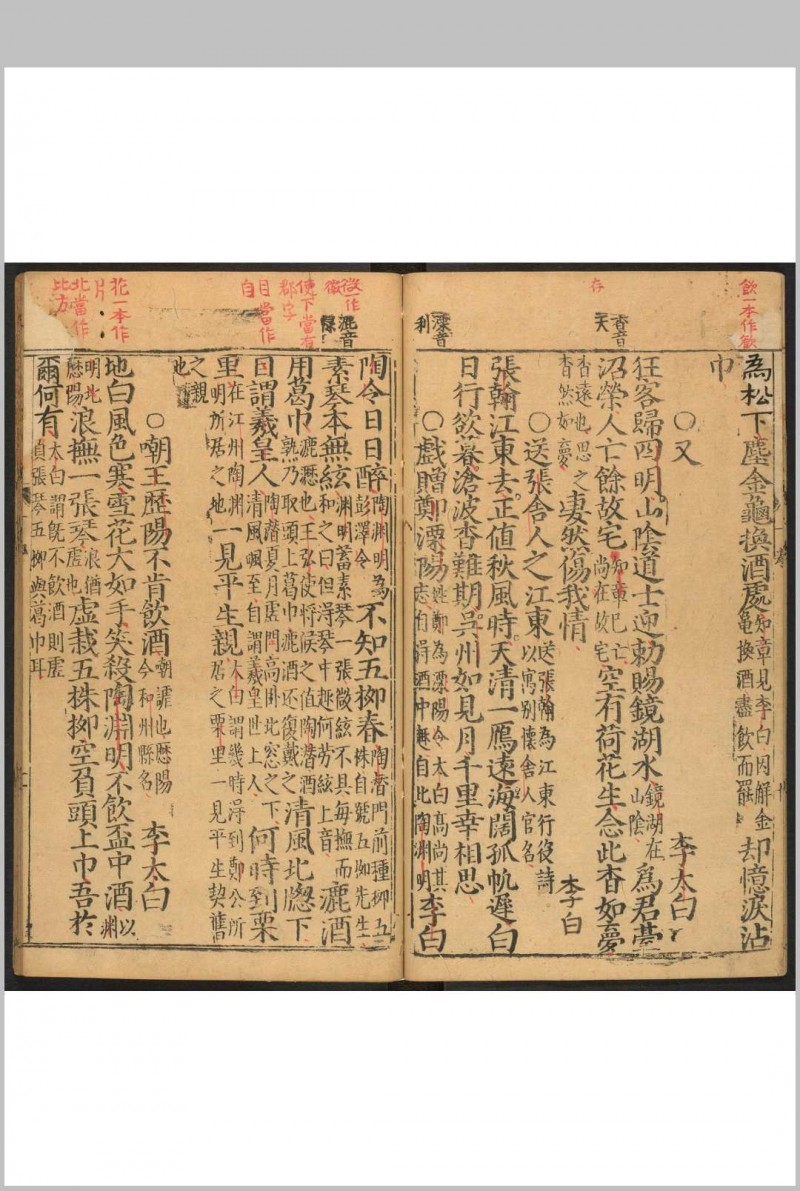 飲一本作歡
為松下塵金龜換酒處知章見李白因解金龜換酒盡飲而罷却憶淚沾
巾
○又 李太白
狂客歸四明山陰道士迎勅賜鏡湖水鏡湖在山陰為君䑓
沼榮人亡餘故宅知章已亡尚在故宅空有荷花生念此杳如夢
杳音天
杳遠也思之杳然如夢凄然傷我情
存
○送張舍人之江東送張翰為江東行役詩以寓別懷舍人官名 李白
張翰江東去正値秋風時天清一鴈遠海闊孤帆遲白
日行欲暮滄波杳難期吳州如見月千里幸相思
○戲贈鄭溧陽姓鄭為溧陽令太白高尚其志自得酒中趣自比陶淵明 李白
溧音利
陶令日日醉陶淵明為彭澤令不知五柳春陶潛門前種柳五株自號五柳先生
漉音祿
徵一作徽
素琴本無絃淵明蓄素琴一張徵絃不具每撫而和之曰但得琴中趣何勞絃上音漉酒
使下當有郡字
用葛巾漉瀝也王弘使將候之值陶潛酒熟乃取頭上葛巾漉酒还復戴之清風北牕下
目當作自
目謂羲皇人陶潛夏月虛閑高臥北窓之下清風颯至自謂羲皇世上人何時到栗
里在江州陶淵明所居之地一見平生親太白謂幾時得到鄭公所居之栗里一見平生契舊
之親也
○嘲王歷陽不肯飲酒嘲謔也歷陽今和州縣名 李太白
花一本作片
地白風色寒雪花大如手笑殺陶淵明不飲盃中酒以淵
北當作比方
明北歷陽浪撫一張琴浪猶虛也虛栽五株柳空負頭上巾吾於
爾何有太白謂旣不飲酒則虛負張琴五柳與葛巾耳